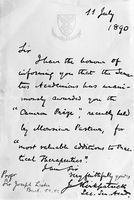 11 July
1890
Sir
I have the honour of
informing you that the Sena-
tus Academicus has unani-
mously awarded you the
"Cameron Prize", recently held
by Monsieur Pasteur, for
"most valuable additions to Prac-
tical Therapeutics".
I am Sir
Yours faithfully
J Kirkpatrick
Sec. Sen. Acad.
Sir Joseph Lister
Bart.